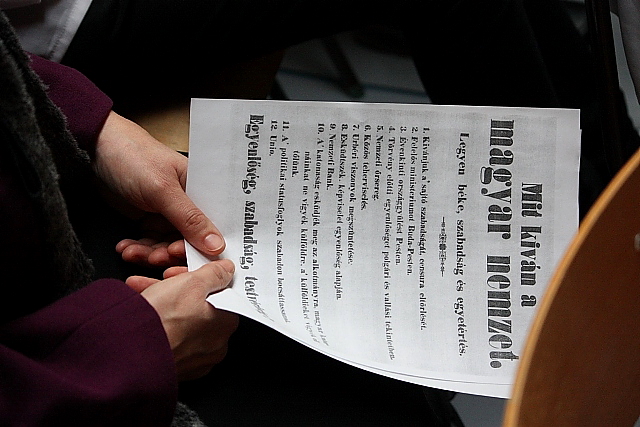 Mit kiván a
magyar nemzet.
Legyen béke, szabadság és egyetértés.
1. Kivánjuk a' sajtó szabadságát, censura eltörlését.
2. Felelős ministeriumot Buda-Pesten.
3. Évenkinti országgyülést Pesten.
4. Törvény előtti egyenlőséget polgári és vallási tekintetben.
5. Nemzeti őrsereg.
6. Közös teherviselés.
7. Urbéri viszonyok megszüntetése.
8. Esküdtszék, képviselet egyenlőség alapján.
9. Nemzeti Bank.
10. A' katonaság esküdjék meg az alkotmányra, magyar
náinkat ne vigyék külföldre, a' külföldieket vigyék
tőlünk.
11. A' politikai statusfoglyok szabadon bocsáttassanak.
12. Unio.
Egyenlőség, szabadság,